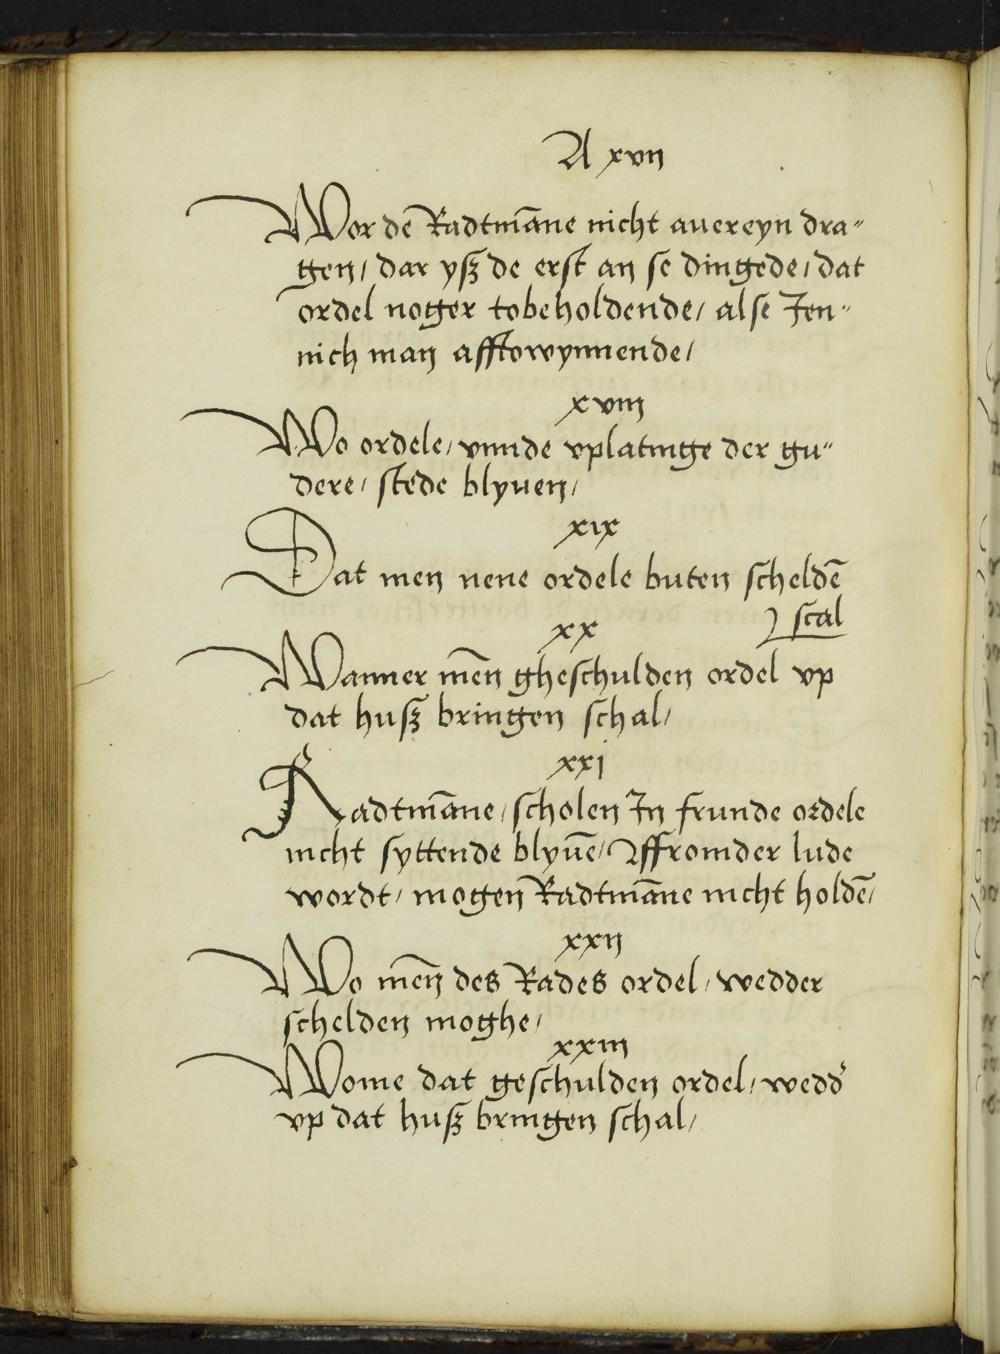 A xvii
Wor de Radtmāne nicht auereyn dra-
gen/ dar ysz de erst an se dingede/ dat
ordel noger tobeholdende/ alse Jen-
nich man afftowynnende/
xviii
Wo ordele/ vnnde vplatinge der gu-
dere/ stede blyuen/
xix
Dat men nene ordele buten scheldē
scal
xx
Wanner mēn gheschulden ordel vp
dat husz bringen schal/
xxi
Radtmāne/ scholen Jn frunde ordele
nicht syttende blyuē/ Affromder lude
wordt/ mogen Radtmāne nicht holdē/
xxii
Wo mēn des Rades ordel/ wedder
schelden moghe/
xxiii
Wome dat geschulden ordel/ wedd'
vp dat husz bringen schal/